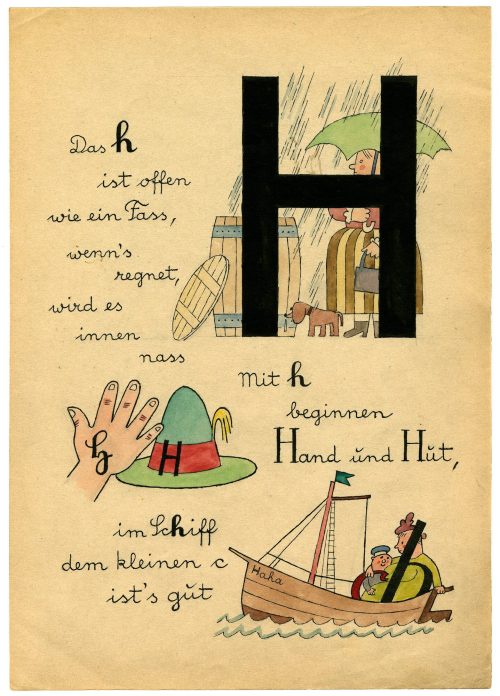 Das h
ist offen
wie ein Fass,
wenn's
regnet,
wird es
innen
nass
H
Mit h
beginnen
Hand ŭnd Hŭt,
h
H
im Schiff
dem kleinen c
ist's gŭt
Haha
h